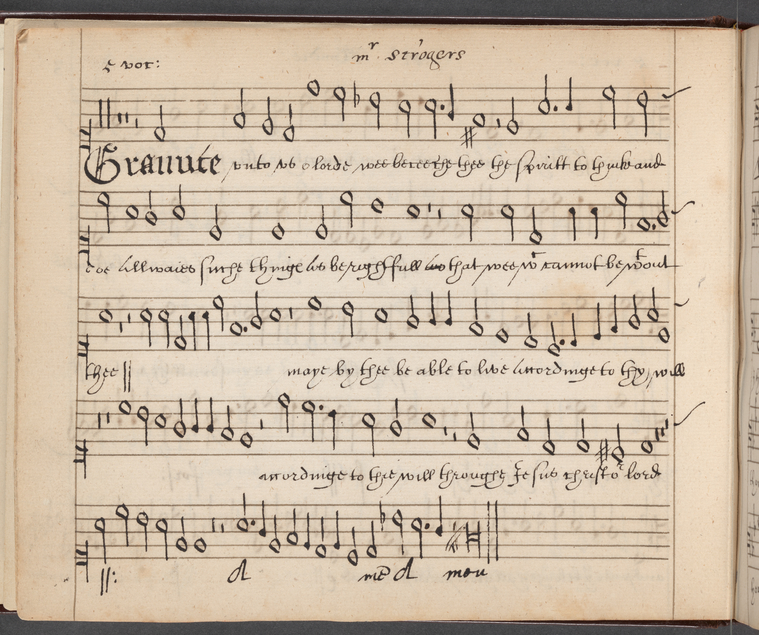 5 voc: mr strogers
Graunte vnto vs o lorde wee beseeche thee the spritt to thinke and
doe allwaies suche thinge as be right full that wee wch cannot be wthout
thee maye by thee be able to live accordinge to thy will
accordinge to thie will throughe Jesus christ or lord
men